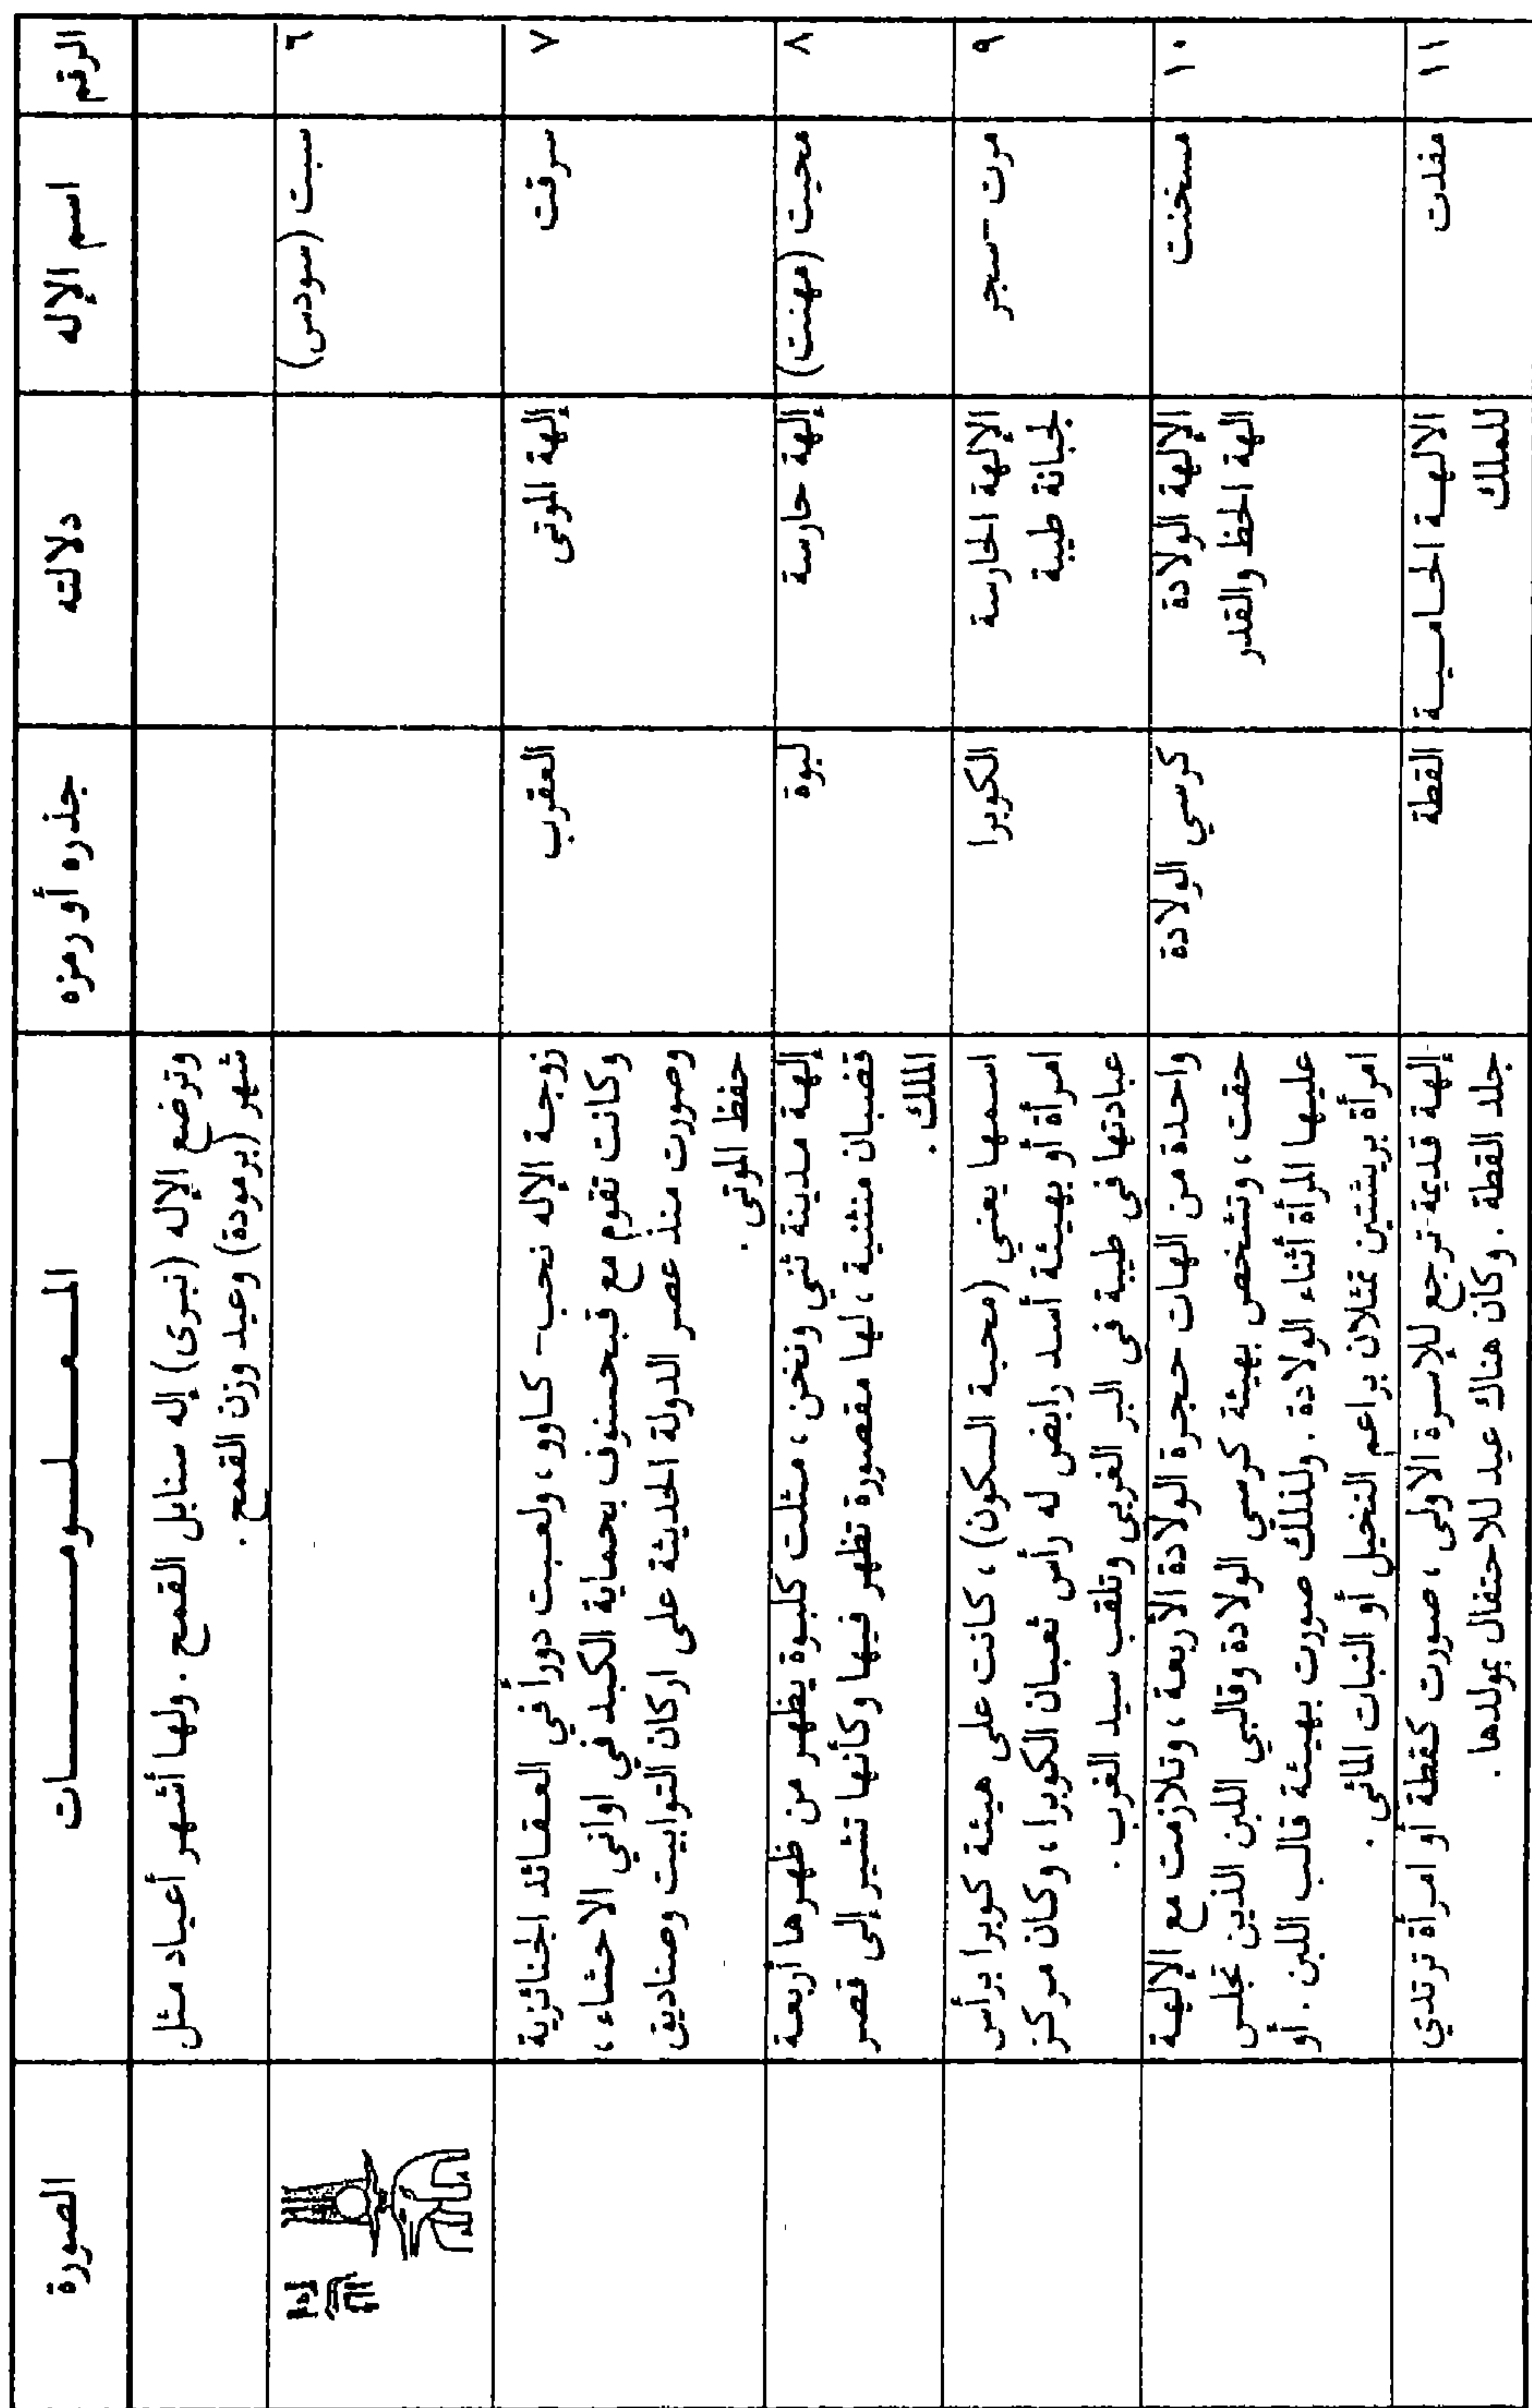 الرقم
اسم الإله
دلالته
جذره أو رمزه
المعلومات
الصورة
وترضع الإله (نبرى) إله سنابل القمح . ولها أشهر أعياد مثل
شهر (برمودة) وعيد وزن القمح .
٦
سبت (سودس)
٧
سرقت
إلهة الموتى
العقرب
زوجة الإله نحب - كاوو، ولعبت دوراً في العقائد الجنائزية
وكانت تقوم مع قبحسنوف بحماية الكبد في اواني الاحشاء ،
وصورت منذ عصر الدولة الحديثة على اركان التوابيت وصناديق
حفظ الموتى .
٨
محيت (مهنت)
إلهة حارسة
لبوة
إلهة مدينة ثني ونخن ، مثلت كلبوة يظهر من ظهرها أربعة
قضبان منثنية ، لها مقصورة تظهر فيها وكأنها تشير إلى قصر
الملك .
٩
مرت -سجر
الإلهة الحارسة
لجبانة طيبة
الكوبرا
اسمها يعني (محبة السكون) ، كانت على هيئة كوبرا برأس
امرأة أو بهيئة أسد رابض له رأس ثعبان الكوبرا ، وكان مركز
عبادتها في طيبة في البر الغربي وتلقب سيد الغرب .
١٠
مسخنت
الإلهة الولادة
الهة الحظ والقدر
كرسي الولادة
واحدة من الهات حجرة الولادة الأربعة ، وتلازمت مع الإلهة
حقت ، وتشخص بهيئة كرسي الولادة وقالبي اللبن الذين تجلس
عليها المرأة أثناء الولادة . ولذلك صورت بهيئة قالب اللبن . أو
امرأة بريشتين تمثلان براعم النخيل أو النبات المائي .
١١
مفدت
الالهة الحامية
للملك
القطة
إلهة قديمة ترجع للإسرة الاولى ، صورت كقطة أو امرأة ترتدي
جلد القطة . وكان هناك عيد للاحتفال بمولدها .